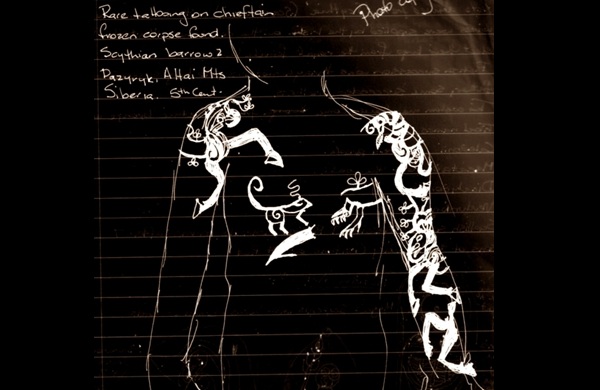 Rare tattooing on chieftain
frozen corpse found.
Scythian barrow 2
Pazyryk, Altai Mts
Siberia. 5th Cent.
Photo copy